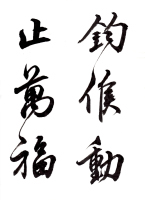 鈞候動
止萬福